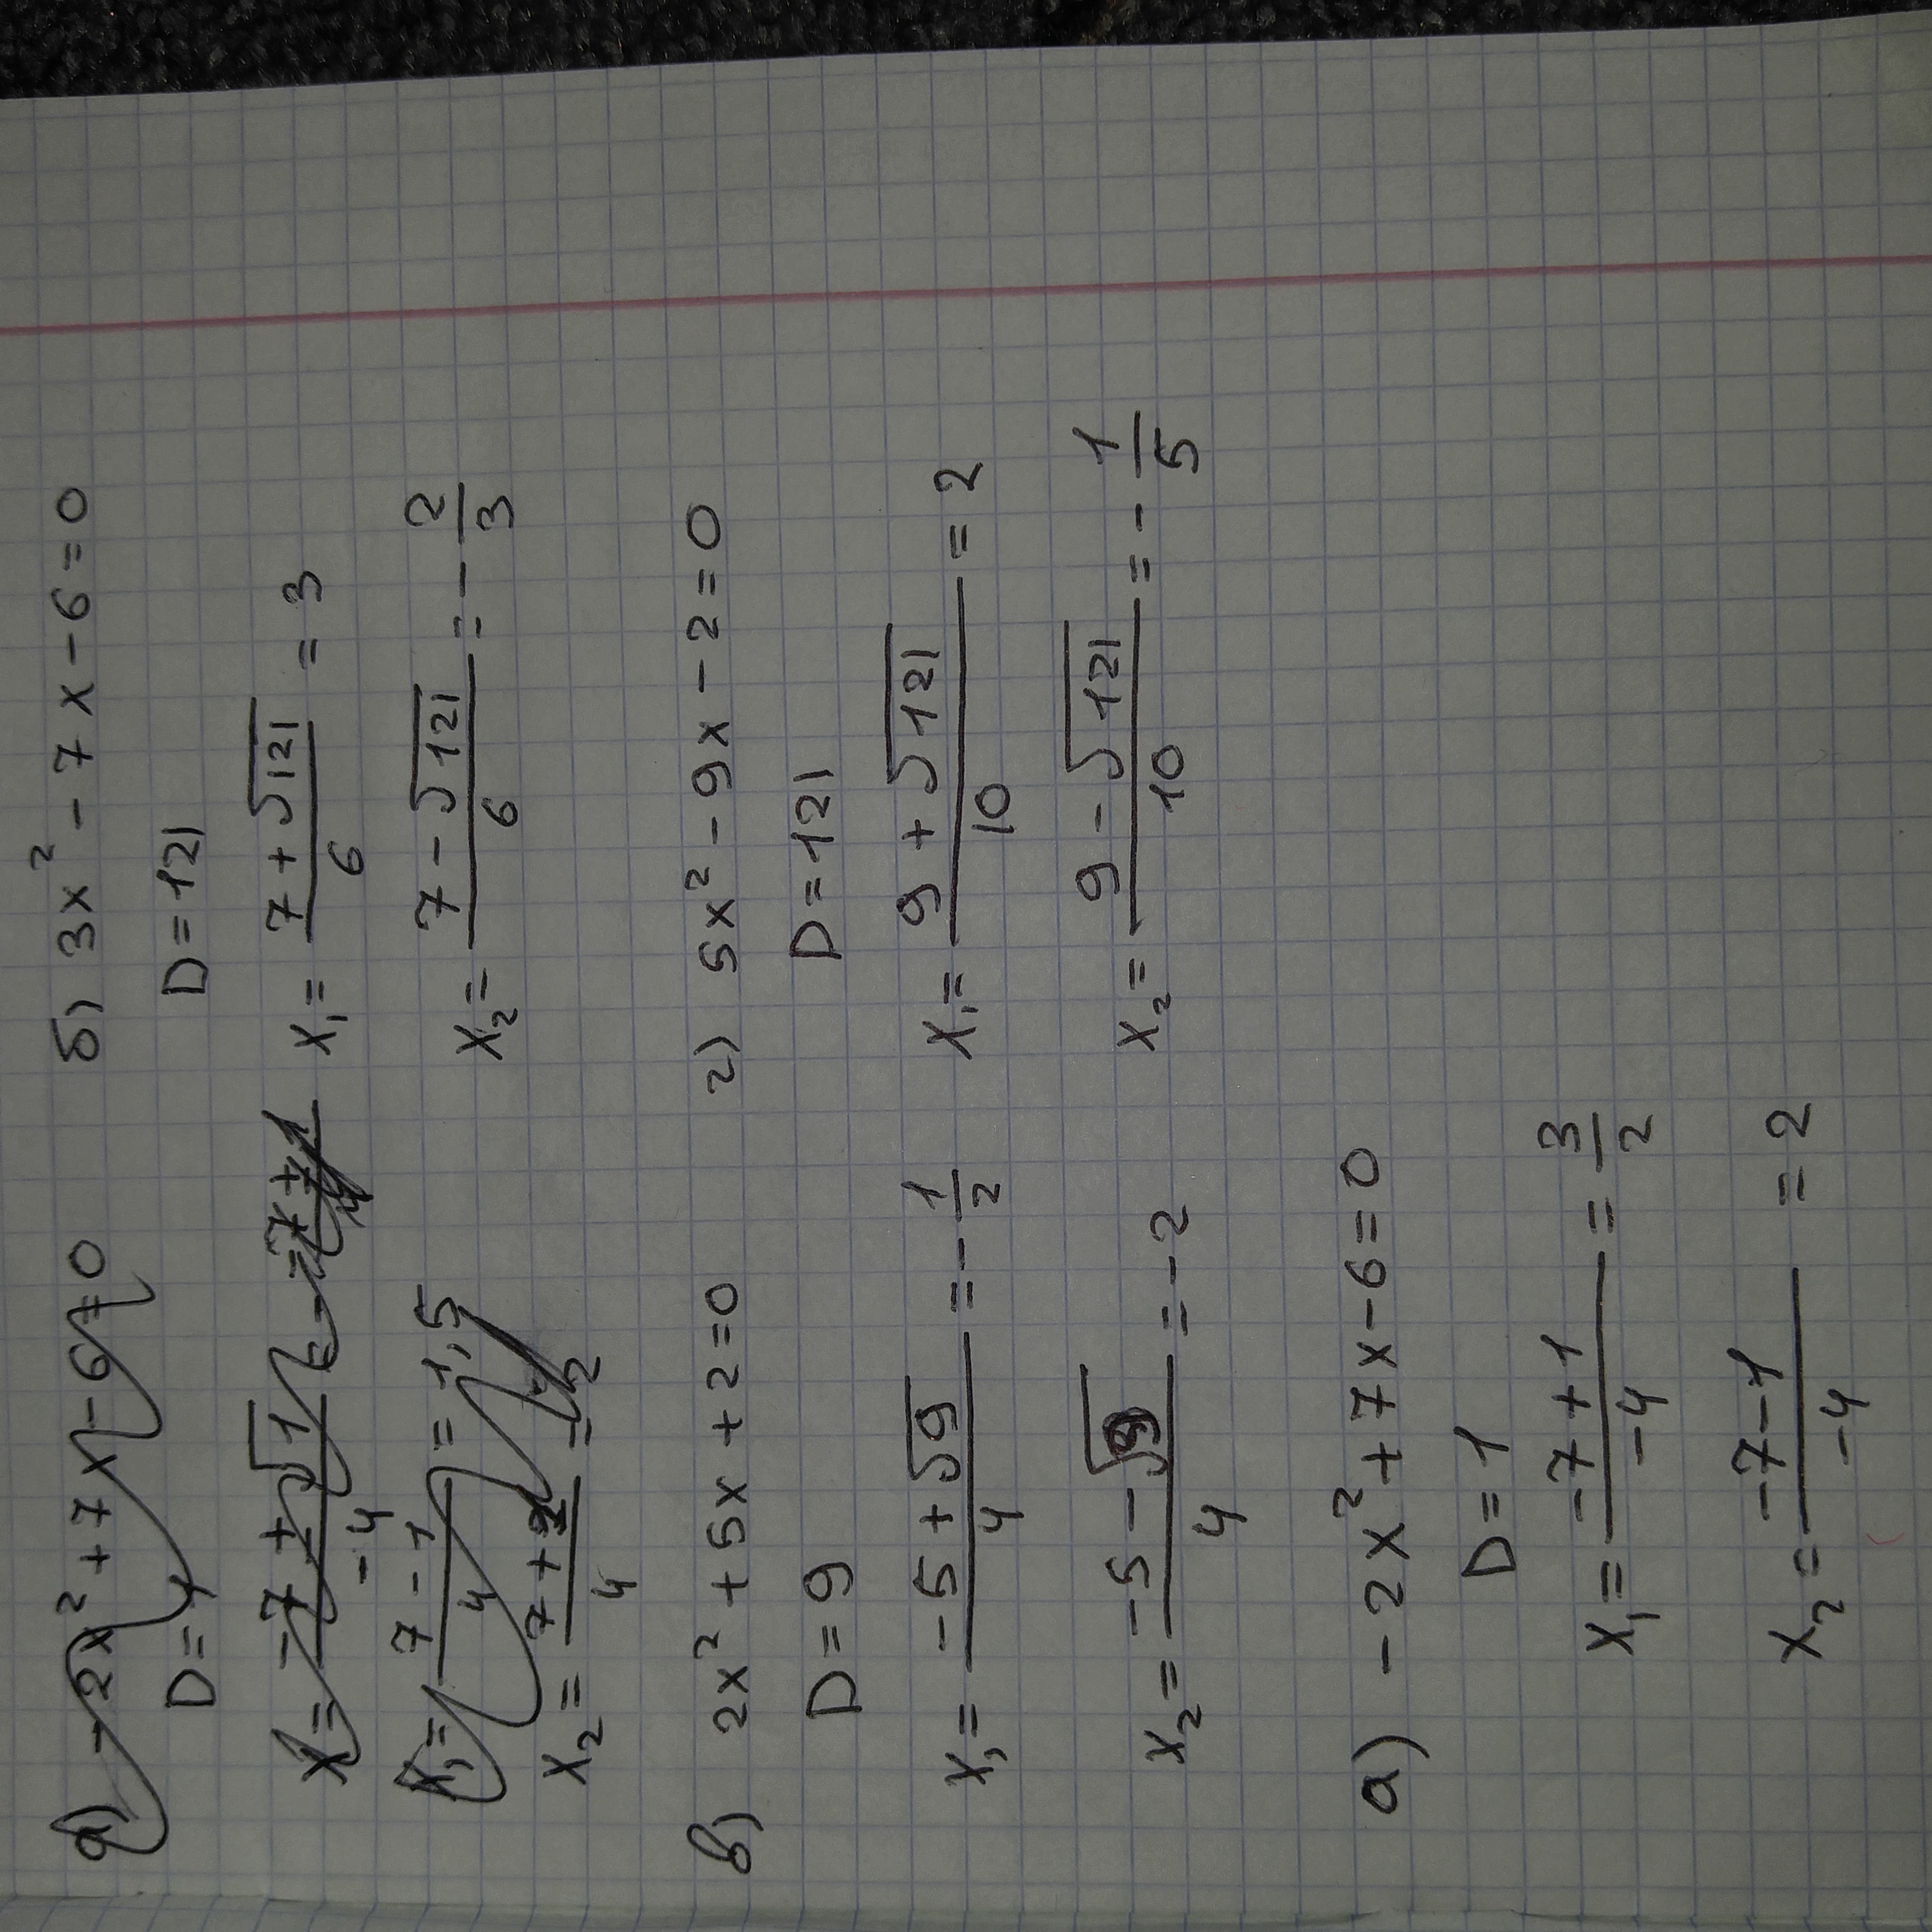 а) -2x² + 7x - 6 = 0
D = 1
x = (-7 + √1)/(-4) =
x₁ = (7 - 1)/4 = 1,5
x₂ = (7 + 1)/4 = 2
б) 3x² - 7x - 6 = 0
D = 121
x₁ = (7 + √121)/6 = 3
x₂ = (7 - √121)/6 = -2/3
в) 2x² + 5x + 2 = 0
D = 9
x₁ = (-5 + √9)/4 = -1/2
x₂ = (-5 - √9)/4 = -2
г) 5x² - 9x - 2 = 0
D = 121
x₁ = (9 + √121)/10 = 2
x₂ = (9 - √121)/10 = -1/5
а) -2x² + 7x - 6 = 0
D = 1
x₁ = (-7 + 1)/(-4) = 3/2
x₂ = (-7 - 1)/(-4) = 2